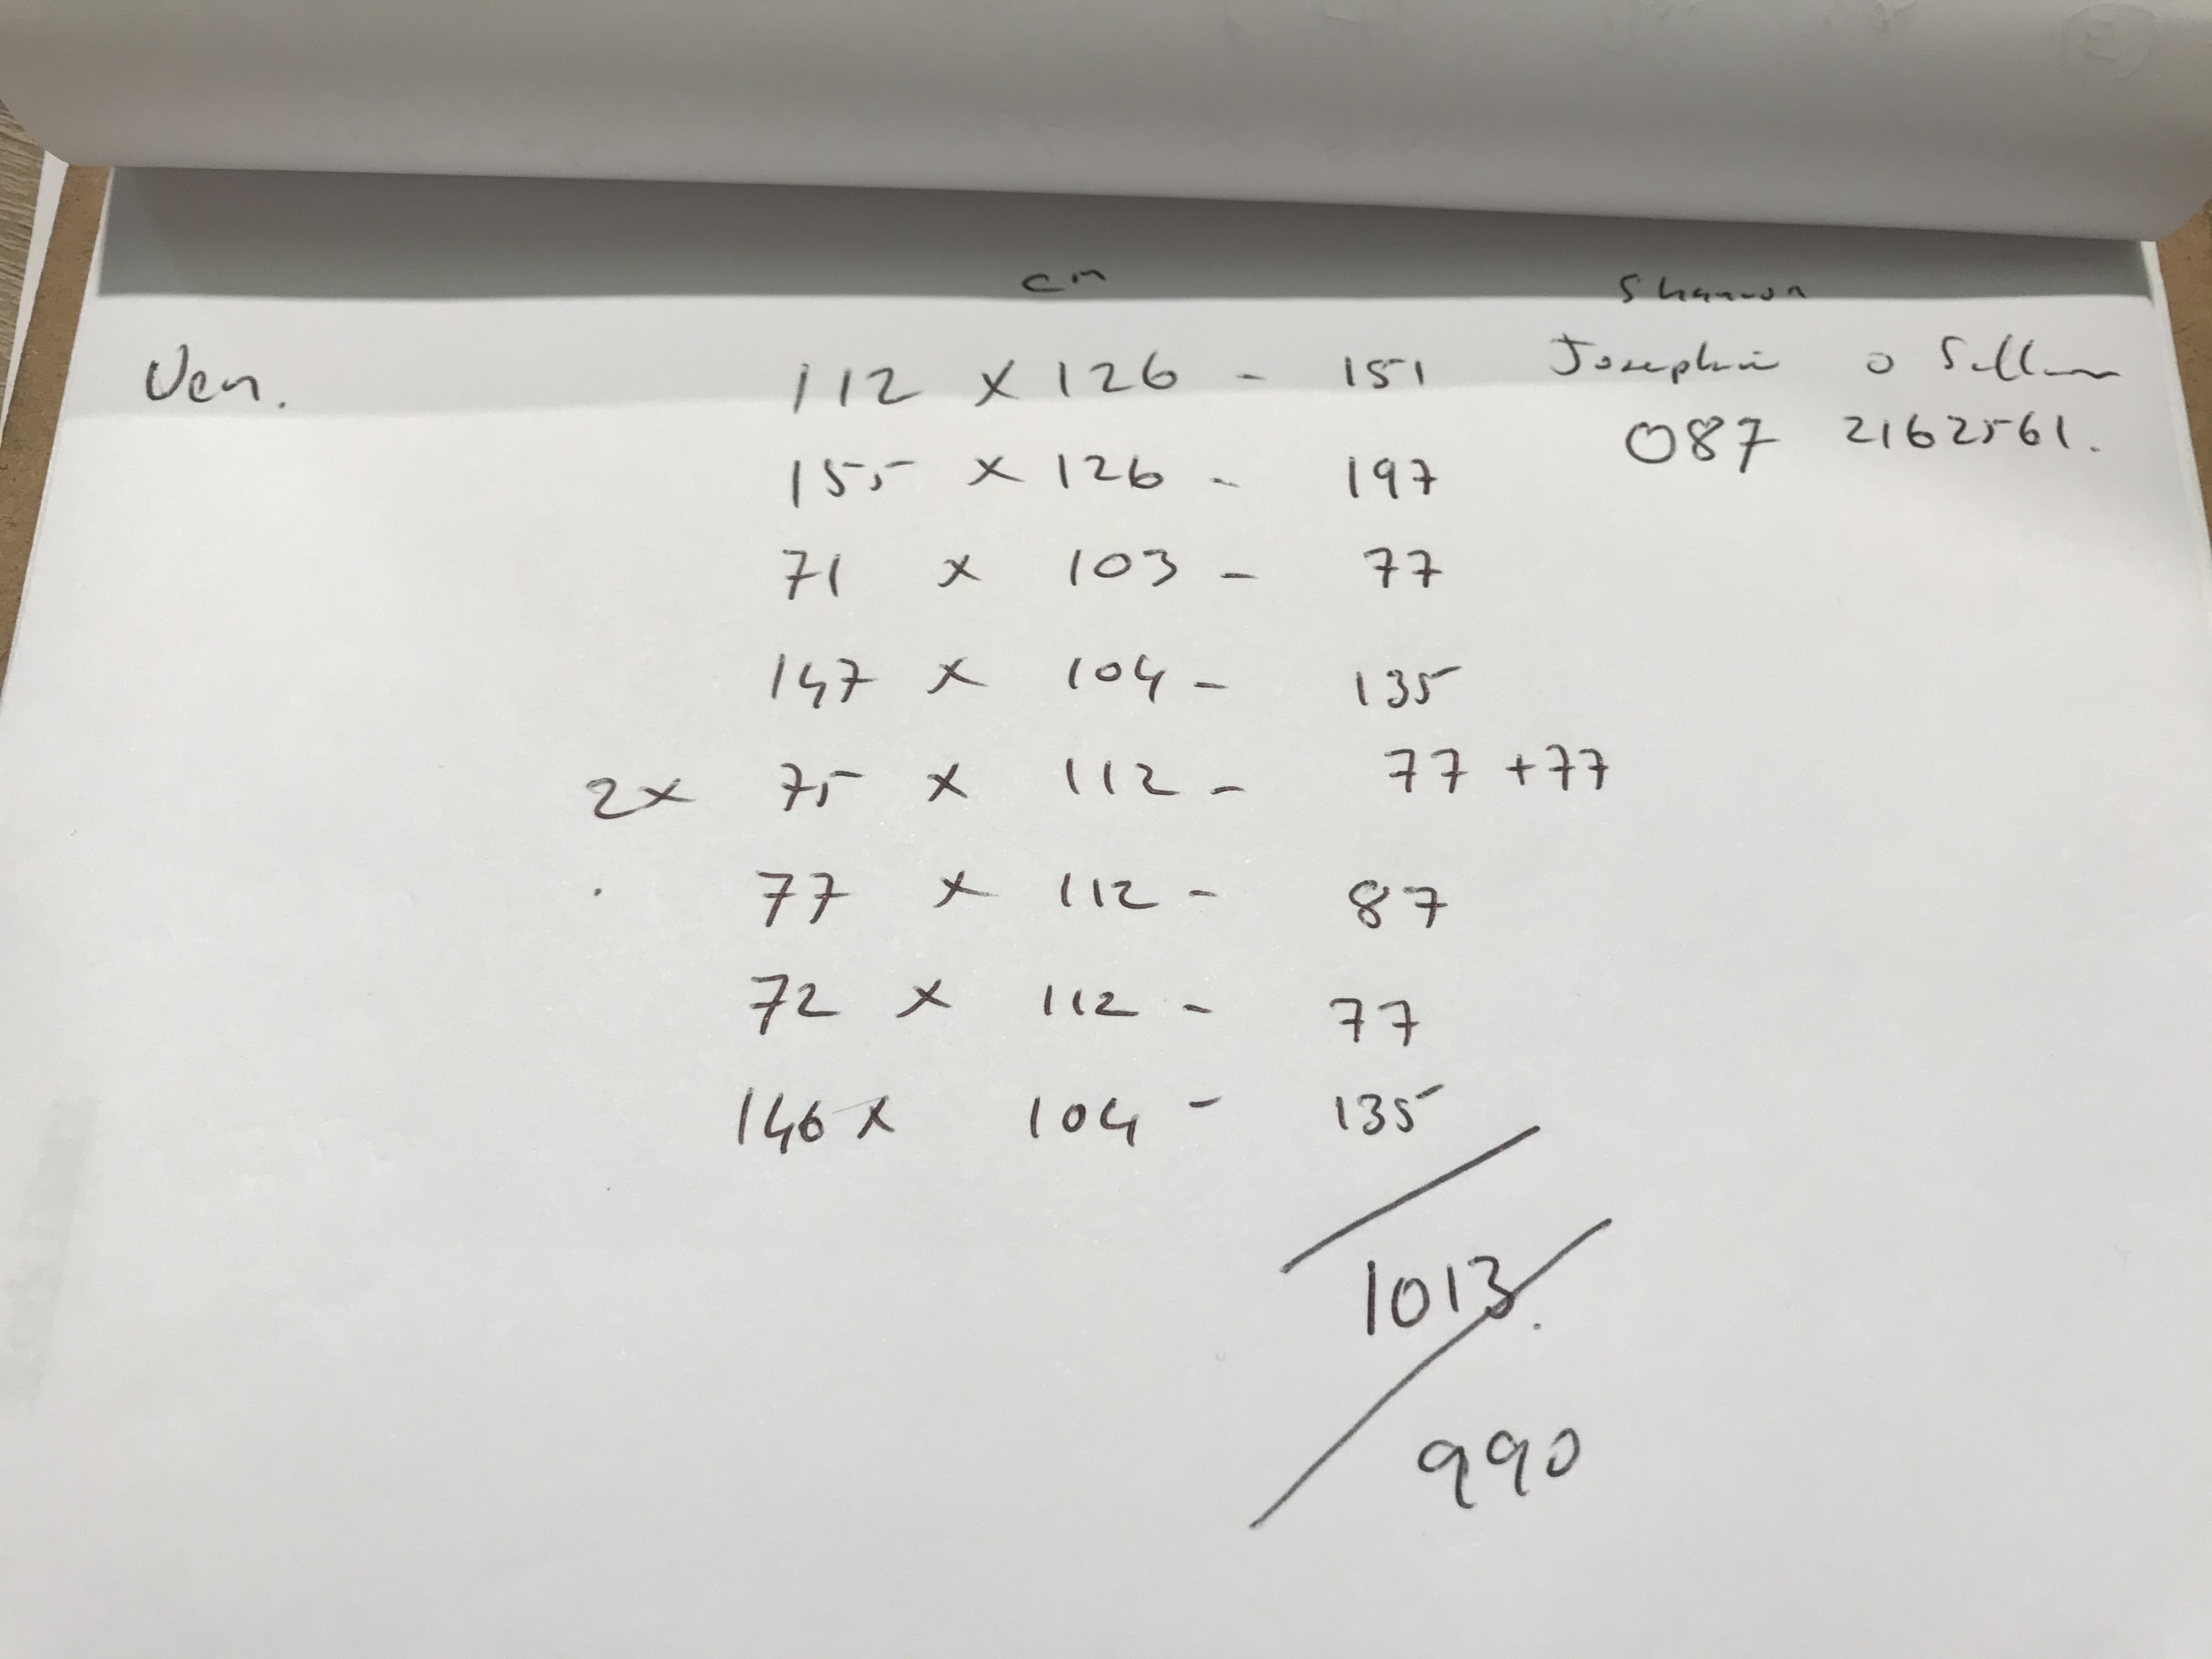 cm
Shannon
Ven. 112 x 126 - 151 Josephine O Sullivan
087 2162561.
155 x 126 - 197
71 x 103 - 77
147 x 104 - 135
2x 75 x 112 - 77 +77
77 x 112 - 87
72 x 112 - 77
146 x 104 - 135
1013.
990